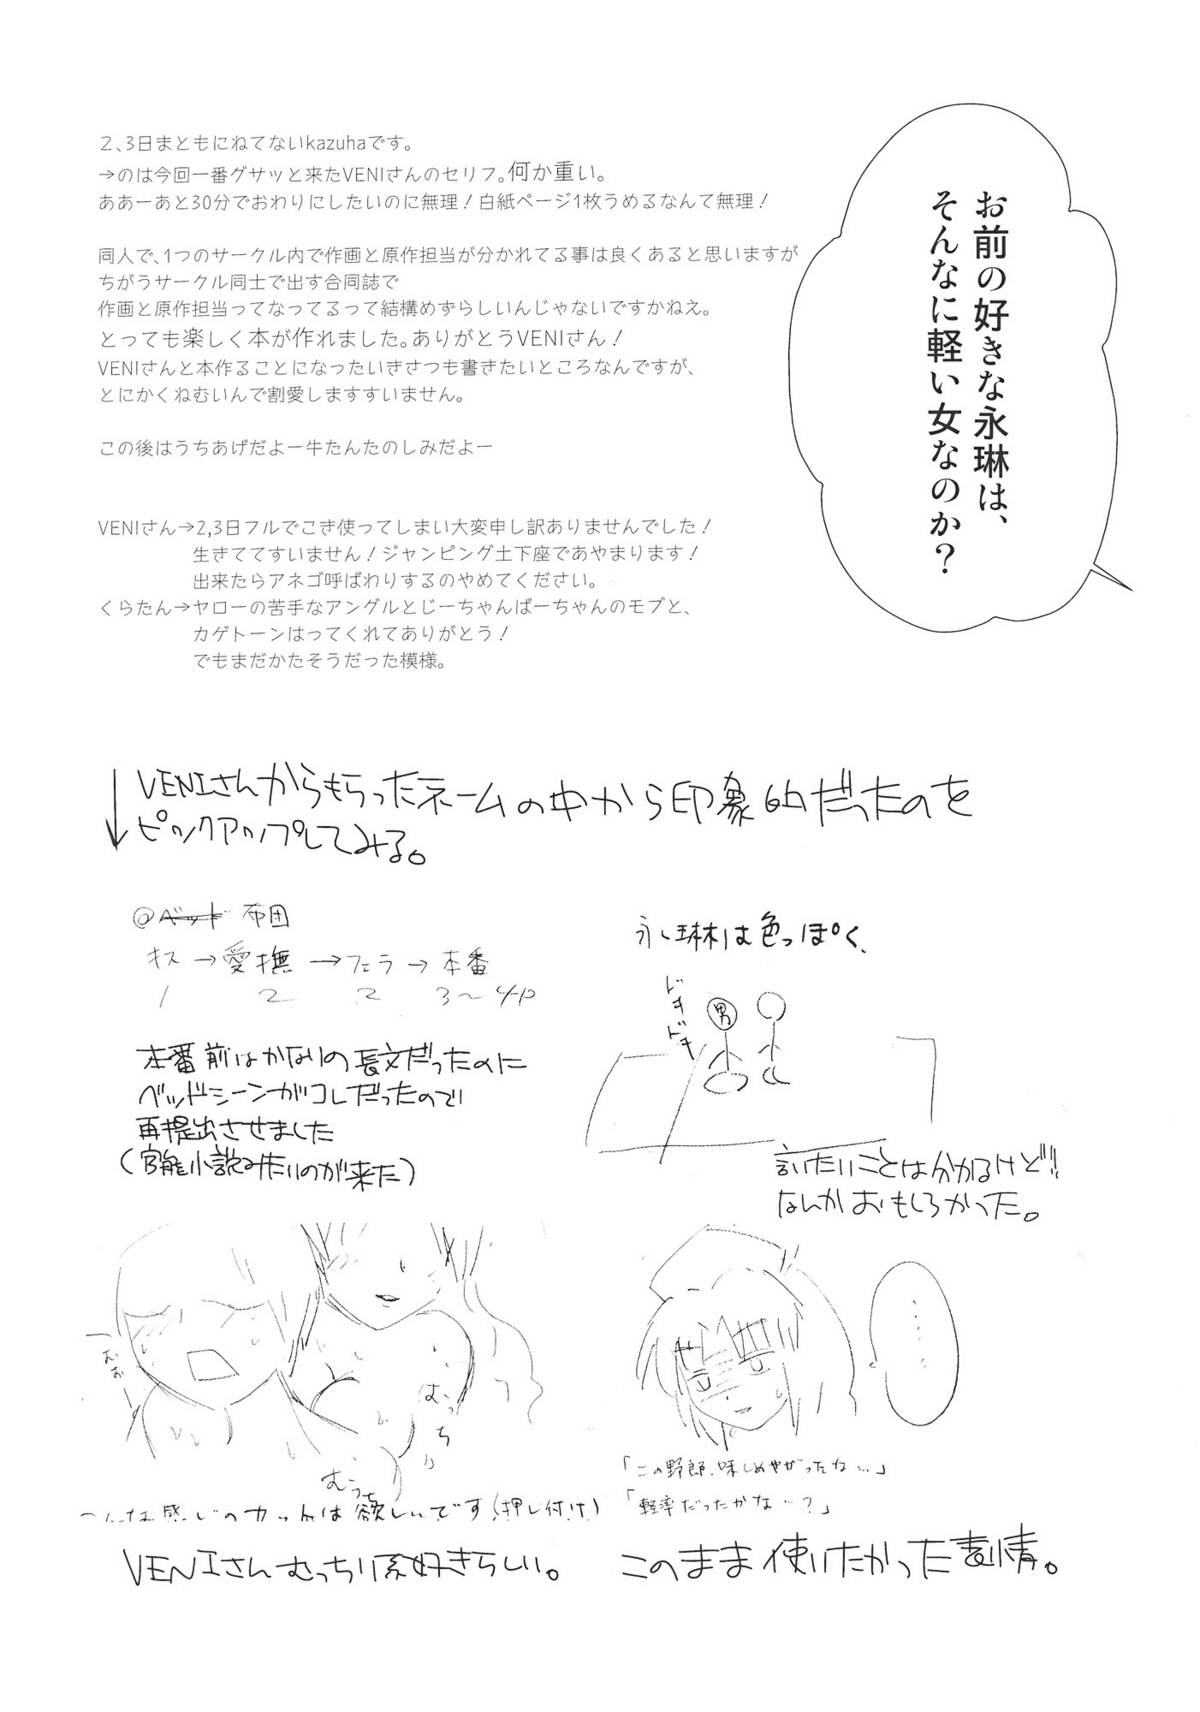 お前の好きな永琳は、
そんなに軽い女なのか？
２、3日まともにねてないkazuhaです。
→のは今回一番グサッと来たVENIさんのセリフ。何か重い。
ああーあと30分でおわりにしたいのに無理！白紙ページ1枚うめるなんて無理！
同人で、1つのサークル内で作画と原作担当が分かれてる事は良くあると思いますが
ちがうサークル同士で出す合同誌で
作画と原作担当ってなってるって結構めずらしいんじゃないですかねえ。
とっても楽しく本が作れました。ありがとうVENIさん！
VENIさんと本作ることになったいきさつも書きたいところなんですが、
とにかくねむいんで割愛しますすいません。
この後はうちあげだよー牛たんたのしみだよー
VENIさん→2,3日フルでこき使ってしまい大変申し訳ありませんでした！
生きててすいません！ジャンピング土下座であやまります！
出来たらアネゴ呼ばわりするのやめてください。
くらたん→ヤローの苦手なアングルとじーちゃんばーちゃんのモブと、
カゲトーンはってくれてありがとう！
でもまだかたそうだった模様。
↓VENIさんからもらったネームの中から印象的だったのを
ピックアップしてみる。
@ベッド 布団
キス→愛撫→フェラ→本番
1 2 2 3〜4P
本番前はかなりの長文だったのに
ベッドシーンがコレだったので
再提出させました
(官能小説みたいのが来た)
永琳は色っぽく、
ドキドキ
男
言いたいことは分かるけど!!
なんかおもしろかった。
むぉ
むっちり
むっちり
こんな感じのカットは欲しいです(押し付け)
VENIさんむっちり系好きらしい。
……
「この野郎、味しめやがったな…」
「軽率だったかな…？」
このまま使いたかった表情。